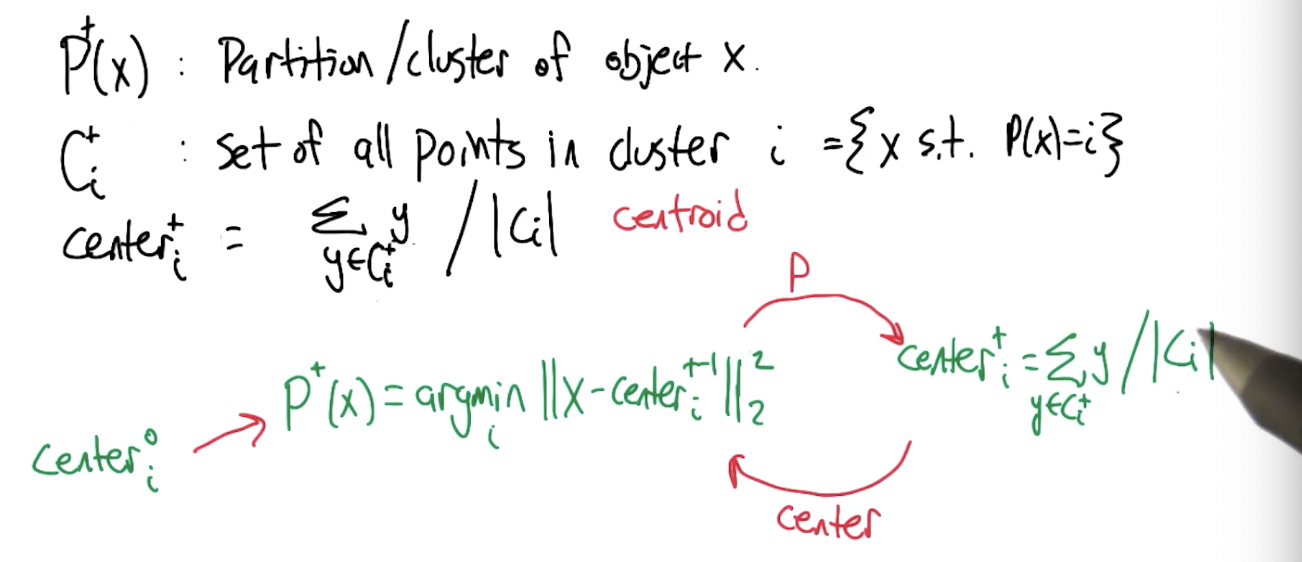 Pᵗ(x) : Partition/cluster of object x.
Cᵢᵗ : set of all points in cluster i = {x s.t. P(x)=i}
centerᵢᵗ = Σ_{y∈Cᵢᵗ} y / |Cᵢ| centroid
P
Pᵗ(x) = argmin_i ||x - centerᵢᵗ⁻¹||₂²
centerᵢᵗ = Σ_{y∈Cᵢᵗ} y / |Cᵢ|
centerᵢ⁰
center